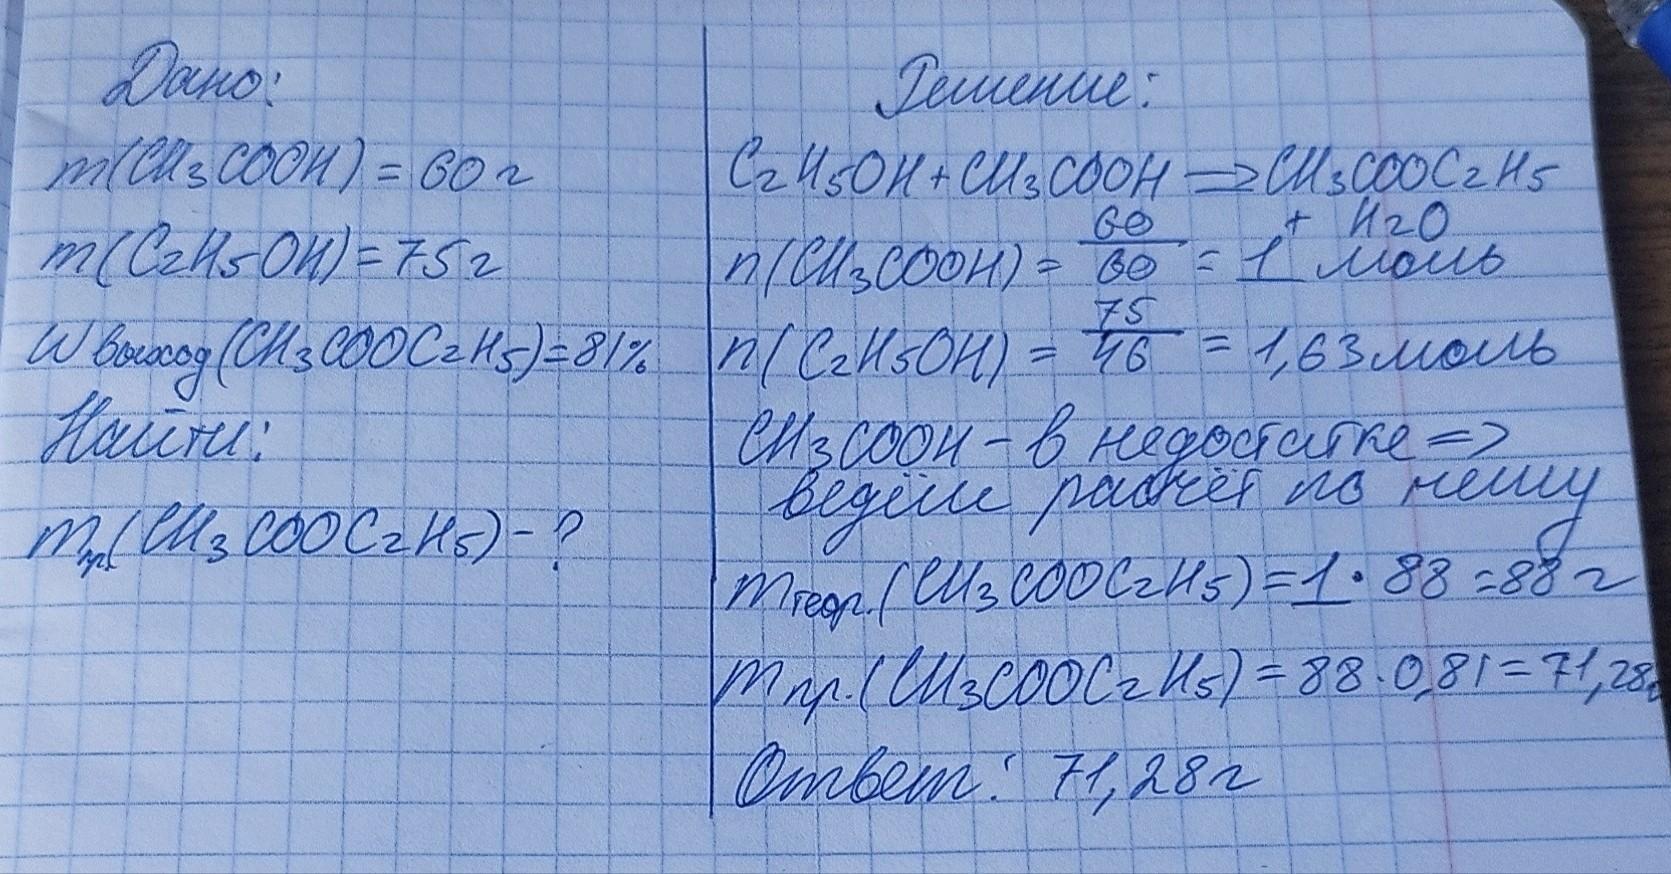 Дано:
m(CH3COOH) = 60 г
m(C2H5OH) = 75 г
W выход (CH3COOC2H5) = 81%
Найти:
mпр.(CH3COOC2H5) - ?
Решение:
C2H5OH + CH3COOH => CH3COOC2H5
+ H2O
n(CH3COOH) = 60/60 = 1 моль
n(C2H5OH) = 75/46 = 1,63 моль
CH3COOH - в недостатке =>
ведём расчёт по нему
mтеор.(CH3COOC2H5) = 1 · 88 = 88 г
mпр.(CH3COOC2H5) = 88 · 0,81 = 71,28г
Ответ: 71,28 г